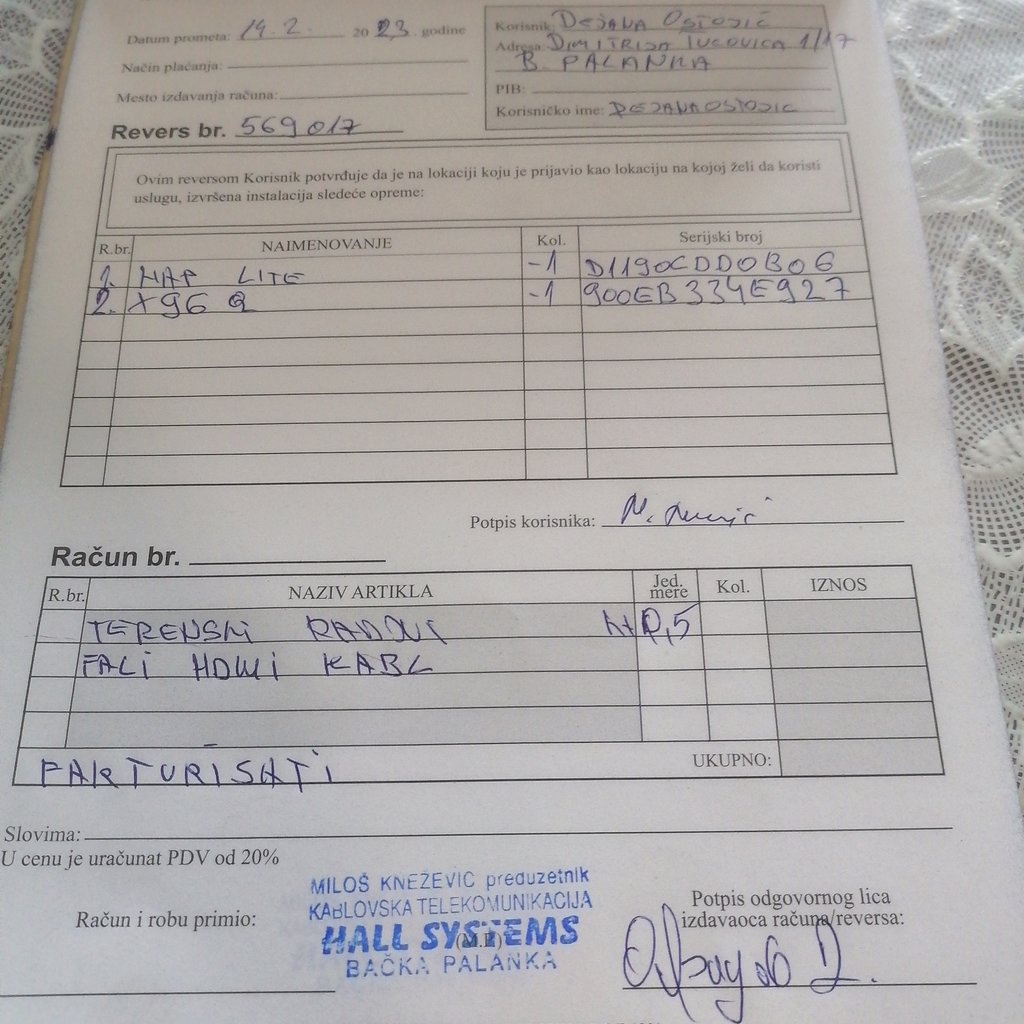 Datum prometa: 14.2. 2023. godine
Način plaćanja:
Mesto izdavanja računa:
Korisnik: DEJANA OSTOJIĆ
Adresa: DIMITRIJA TUCOVICA 1/17
B. PALANKA
PIB:
Korisničko ime: DEJANAOSTOJIC
Revers br. 569017
Ovim reversom Korisnik potvrđuje da je na lokaciji koju je prijavio kao lokaciju na kojoj želi da koristi
uslugu, izvršena instalacija sledeće opreme:
R.br. NAIMENOVANJE Kol. Serijski broj
1. HAP LITE -1 D1190CDD0B06
2. X96 Q -1 900EB334E927
Potpis korisnika:
Račun br.
R.br. NAZIV ARTIKLA Jed. mere Kol. IZNOS
TERENSKI RADOVI 0,5
FALI HDMI KABL
FAKTURISATI UKUPNO:
Slovima:
U cenu je uračunat PDV od 20%
Račun i robu primio:
MILOŠ KNEŽEVIĆ preduzetnik
KABLOVSKA TELEKOMUNIKACIJA
HALL SYSTEMS
(M.P.)
BAČKA PALANKA
Potpis odgovornog lica
izdavaoca računa/reversa: